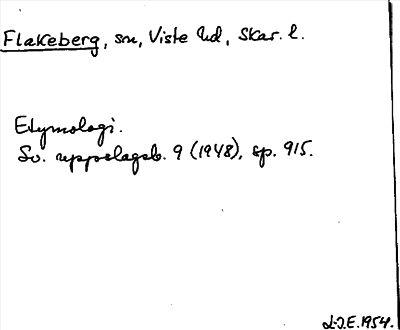 Flakeberg, sn, Viste hd, Skar. l.
Etymologi.
Sv. uppslagsb. 9 (1948), sp. 915.
L.J.E. 1954.